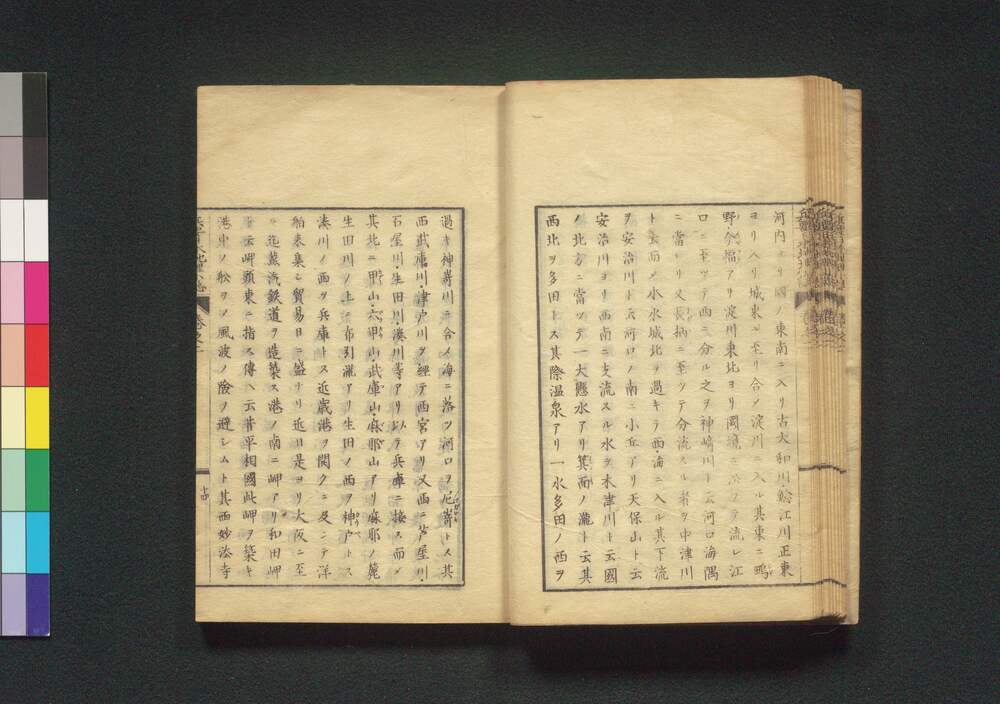 河内ヨリ國ノ東南ニ入リ古大和川鯰江川正東
ヨリ入リ城東ニ至リ合メ淀川ニ入ル其東ニ鴫
野今福アリ淀川東北ヨリ國壤ニ テ流レ江
口ニ至ツテ西ニ分ル之ヲ神崎川ト云河口海隅
ニ當レリ又長柄ニ至ツテ分流スル者ヲ中津川
ト云而メ水水城北ヲ過キテ西海ニ入ル其下流
ヲ安治川ト云河口ノ南ニ小丘アリ天保山ト云
安治川ヨリ西南ニ支流スル水ヲ木津川ト云國
ノ北方ニ當ツテ一大懸水アリ箕面ノ瀧ト云其
西北ヲ多田トス其際温泉アリ一水多田ノ西ヲ
過キ神嵜川ニ合メ海ニ落ツ河口ヲ尼嵜トス其
西武庫川津户川ヲ經テ西宮アリ又西ニ芦屋川
石屋川生田川湊川等アリ以テ兵庫ニ接ス而メ
其北ニ甲山六甲山武庫山麻耶山アリ麻耶ノ麓
生田川ノ上ニ布引瀧アリ生田ノ西ヲ神户トス
湊川ノ西ヲ兵庫トス近歳港ヲ開クニ及ンテ洋
舶来集シ貿易日ニ盛ナリ近日是ヨリ大阪ニ至
ル迄蒸汽鉄道ヲ造築ス港ノ南ニ岬アリ和田岬
ト云岬頭東ニ指ス傳ヘ云昔平相國此岬ヲ築キ
港中ノ舩ヲメ風波ノ險ヲ避シムト其西妙法寺